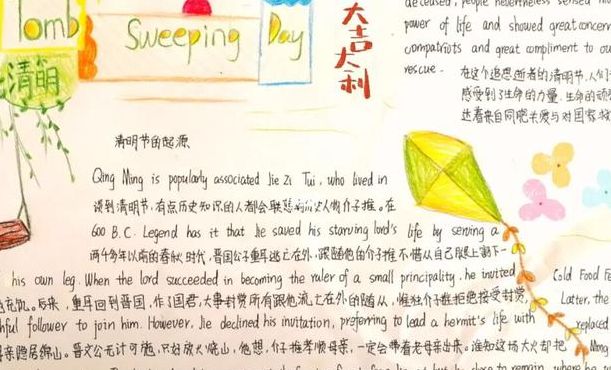 Tomb
Sweeping
Day
清明
大吉大利
deceased, people nevertheless sensed
power of life and showed great concern
compatriots and great compliment to ou
rescue.
在这个追思逝者的清明节,人们
感受到了生命的力量,生命的顽
达着来自同胞关爱与对国家救
清明节的起源
Qing Ming is popularly associated Jie Zi Tui, who lived in
谈到清明节,有点历史知识的人都会联想到历史人物介子推。在
600 B.C. Legend has it that Jie saved his starving lord's life by serving a
两千多年以前的春秋时代,晋国公子重耳逃亡在外,跟随他的介子推不惜从自己腿上割下一
his own leg. When the lord succeeded in becoming the ruler of a small principality, he invited
充饥。后来,重耳回到晋国,作了国君,大事封赏所有跟他流亡在外的随从,惟独介子推拒绝接受封赏,
hful follower to join him. However, Jie declined his invitation, preferring to lead a hermit's life with
母亲隐居绵山。晋文公无计可施,只好放火烧山,他想,介子推孝顺母亲,一定会带着老母亲出来。谁知这场大火却把
Cold Food Fe
Latter, the
replaced
Ming